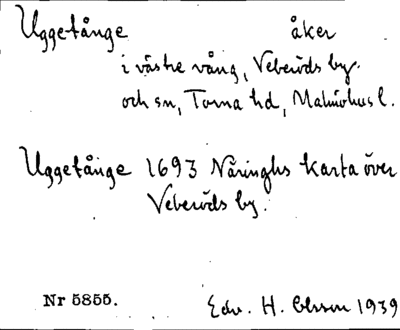 Uggetånge åker
i västre vång, Veberöds by.
och sn, Torna hd, Malmöhus l.
Uggetånge 1693 Nåringhs karta över
Veberöds by.
Nr 5855.
Edv. H. Olsson 1939